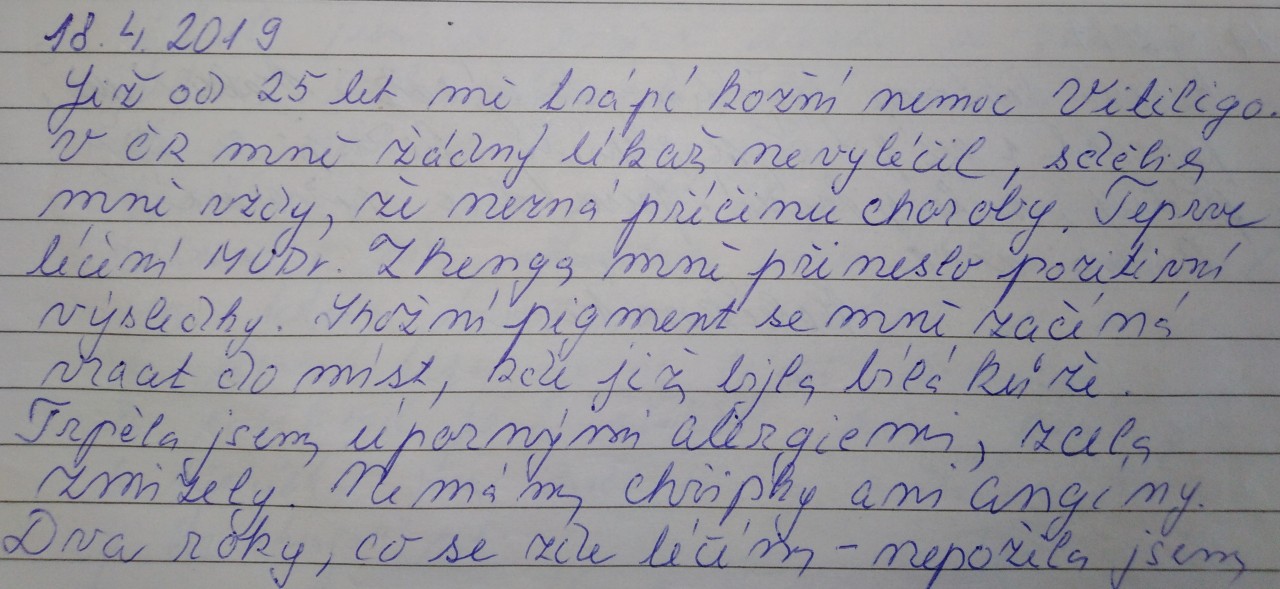 18. 4. 2019
Již od 25 let mě trápí kožní nemoc Vitiligo.
V ČR mně žádný lékař nevyléčil, sdělil
mně vždy, že nezná příčinu choroby. Teprve
léčení MUDr. Zhenga mně přineslo pozitivní
výsledky. Kožní pigment se mně začíná
vracet do míst, kde již byla bílá kůže.
Trpěla jsem úpornými alergiemi, zcela
zmizely. Nemám chřipky ani angíny.
Dva roky, co se zde léčím - nepožila jsem